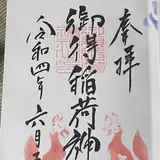 奉拝
御得稲荷神
令和四年六月